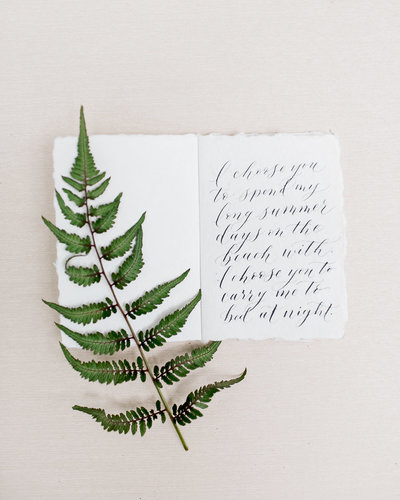 I choose you
to spend my
long summer
days on the
beach with.
I choose you to
carry me to
bed at night.